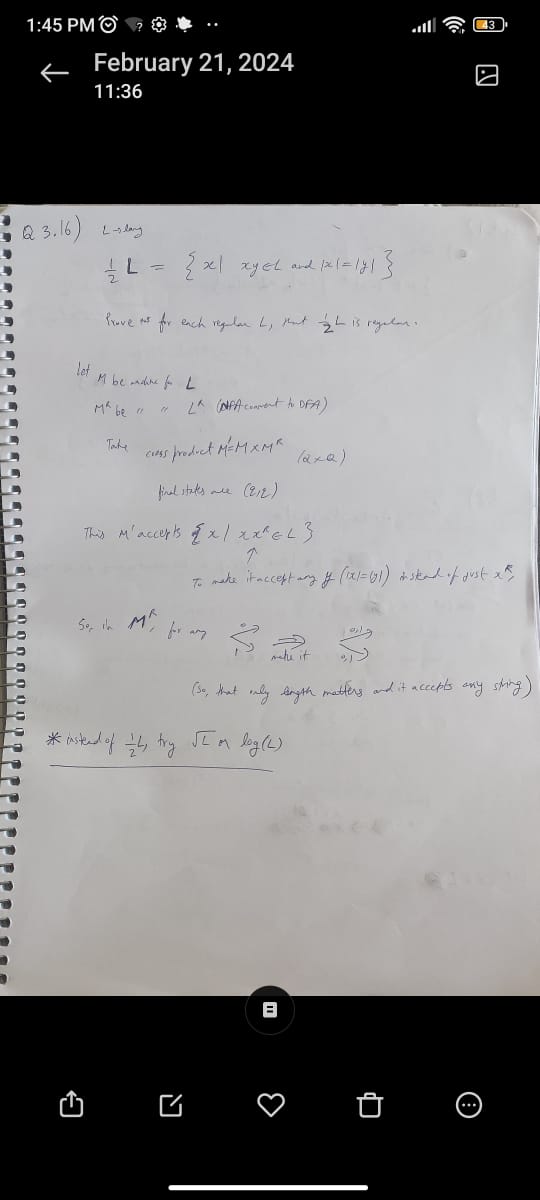 1:45 PM
43
February 21, 2024
11:36
Q 3.16) L → lang
½ L = { x | xy ∈ L and |x| = |y| }
Prove that for each regular L, that ½ L is regular.
Let M be machine for L
Mᴿ be " " Lᴿ (NFA convert to DFA)
Take cross product M' = M × Mᴿ (Q × Q)
final states are (q, q)
This M' accepts { x | x xᴿ ∈ L }
↑
To make it accept any y (|x| = |y|) instead of just xᴿ,
So, in Mᴿ, for any 0 1 ⇒ make it 0,1 0,1
(so, that only length matters and it accepts any string)
* instead of ½ L, try √L or log(L)